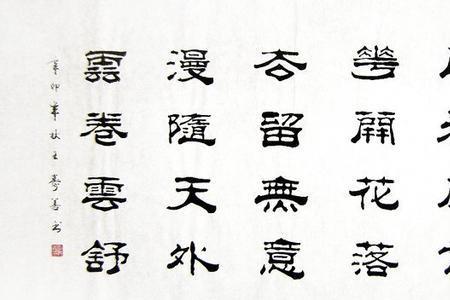 華開花落
去留無意
漫隨天外
雲卷雲舒
辛卯年秋王壽善书